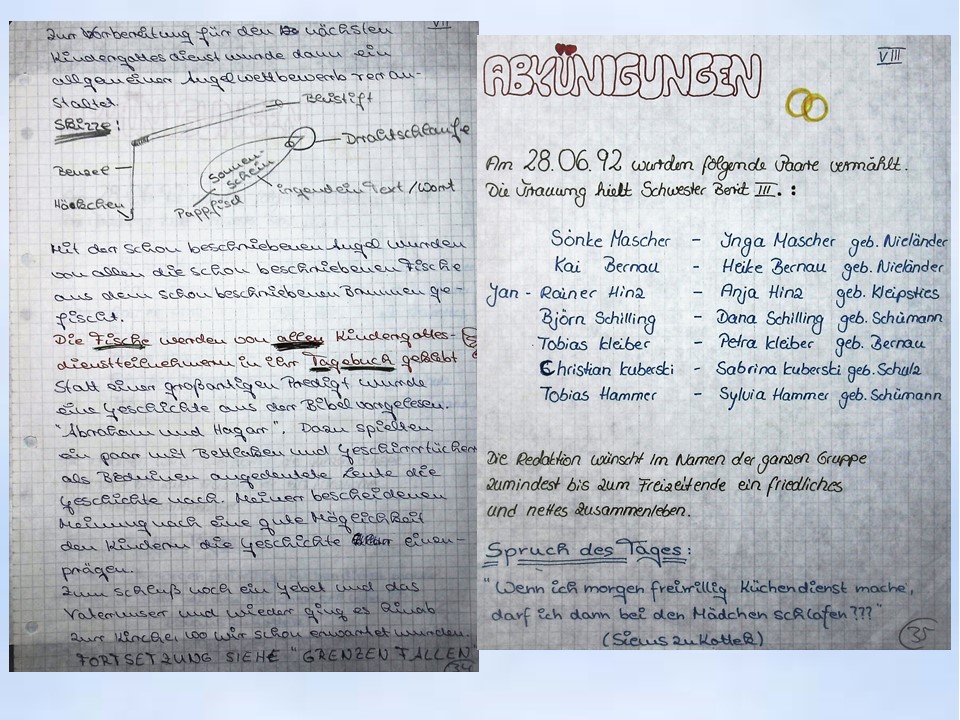 VII
Zur Vorbereitung für den nächsten
Kindergottesdienst wurde dann ein
allgemeiner Angelwettbewerb veran-
staltet.
Skizze:
Bleistift
Drahtschlaufe
Sonnen-
schein
irgendein Text/Wort
Pappfisch
Häckchen
Mit der schon beschriebenen Angel wurden
von allen die schon beschriebenen Fische
aus dem schon beschriebenen Brunnen ge-
fischt.
Die Fische werden von allen Kindergottes-
dienstteilnehmern in ihr Tagebuch geklebt
Statt einer großartigen Predigt wurde
eine Geschichte aus der Bibel vorgelesen.
"Abraham und Hagar". Dazu spielten
ein paar mit Bettlaken und Geschirrtüchern
als Beduinen angedeutete Leute die
Geschichte nach. Meiner bescheidenen
Meinung nach eine gute Möglichkeit
den Kindern die Geschichte einzu-
prägen.
Zum Schluß noch ein Gebet und das
Vaterunser und wieder ging es hinab
zur Kirche, wo wir schon erwartet wurden.
FORTSETZUNG SIEHE "GRENZEN FALLEN"
34
VIII
ABKÜNIGUNGEN
Am 28.06.92 wurden folgende Paare vermählt.
Die Trauung hielt Schwester Berit III. :
Sönke Mascher - Inga Mascher geb. Nieländer
Kai Bernau - Heike Bernau geb. Nieländer
Jan-Rainer Hinz - Anja Hinz geb. Kleipsties
Björn Schilling - Dana Schilling geb. Schümann
Tobias Kleiber - Petra Kleiber geb. Bernau
Christian Kuberski - Sabrina Kuberski geb. Schulz
Tobias Hammer - Sylvia Hammer geb. Schümann
Die Redaktion wünscht im Namen der ganzen Gruppe
zumindest bis zum Freizeitende ein friedliches
und nettes Zusammenleben.
Spruch des Tages:
"Wenn ich morgen freiwillig Küchendienst mache,
darf ich dann bei den Mädchen schlafen???"
35